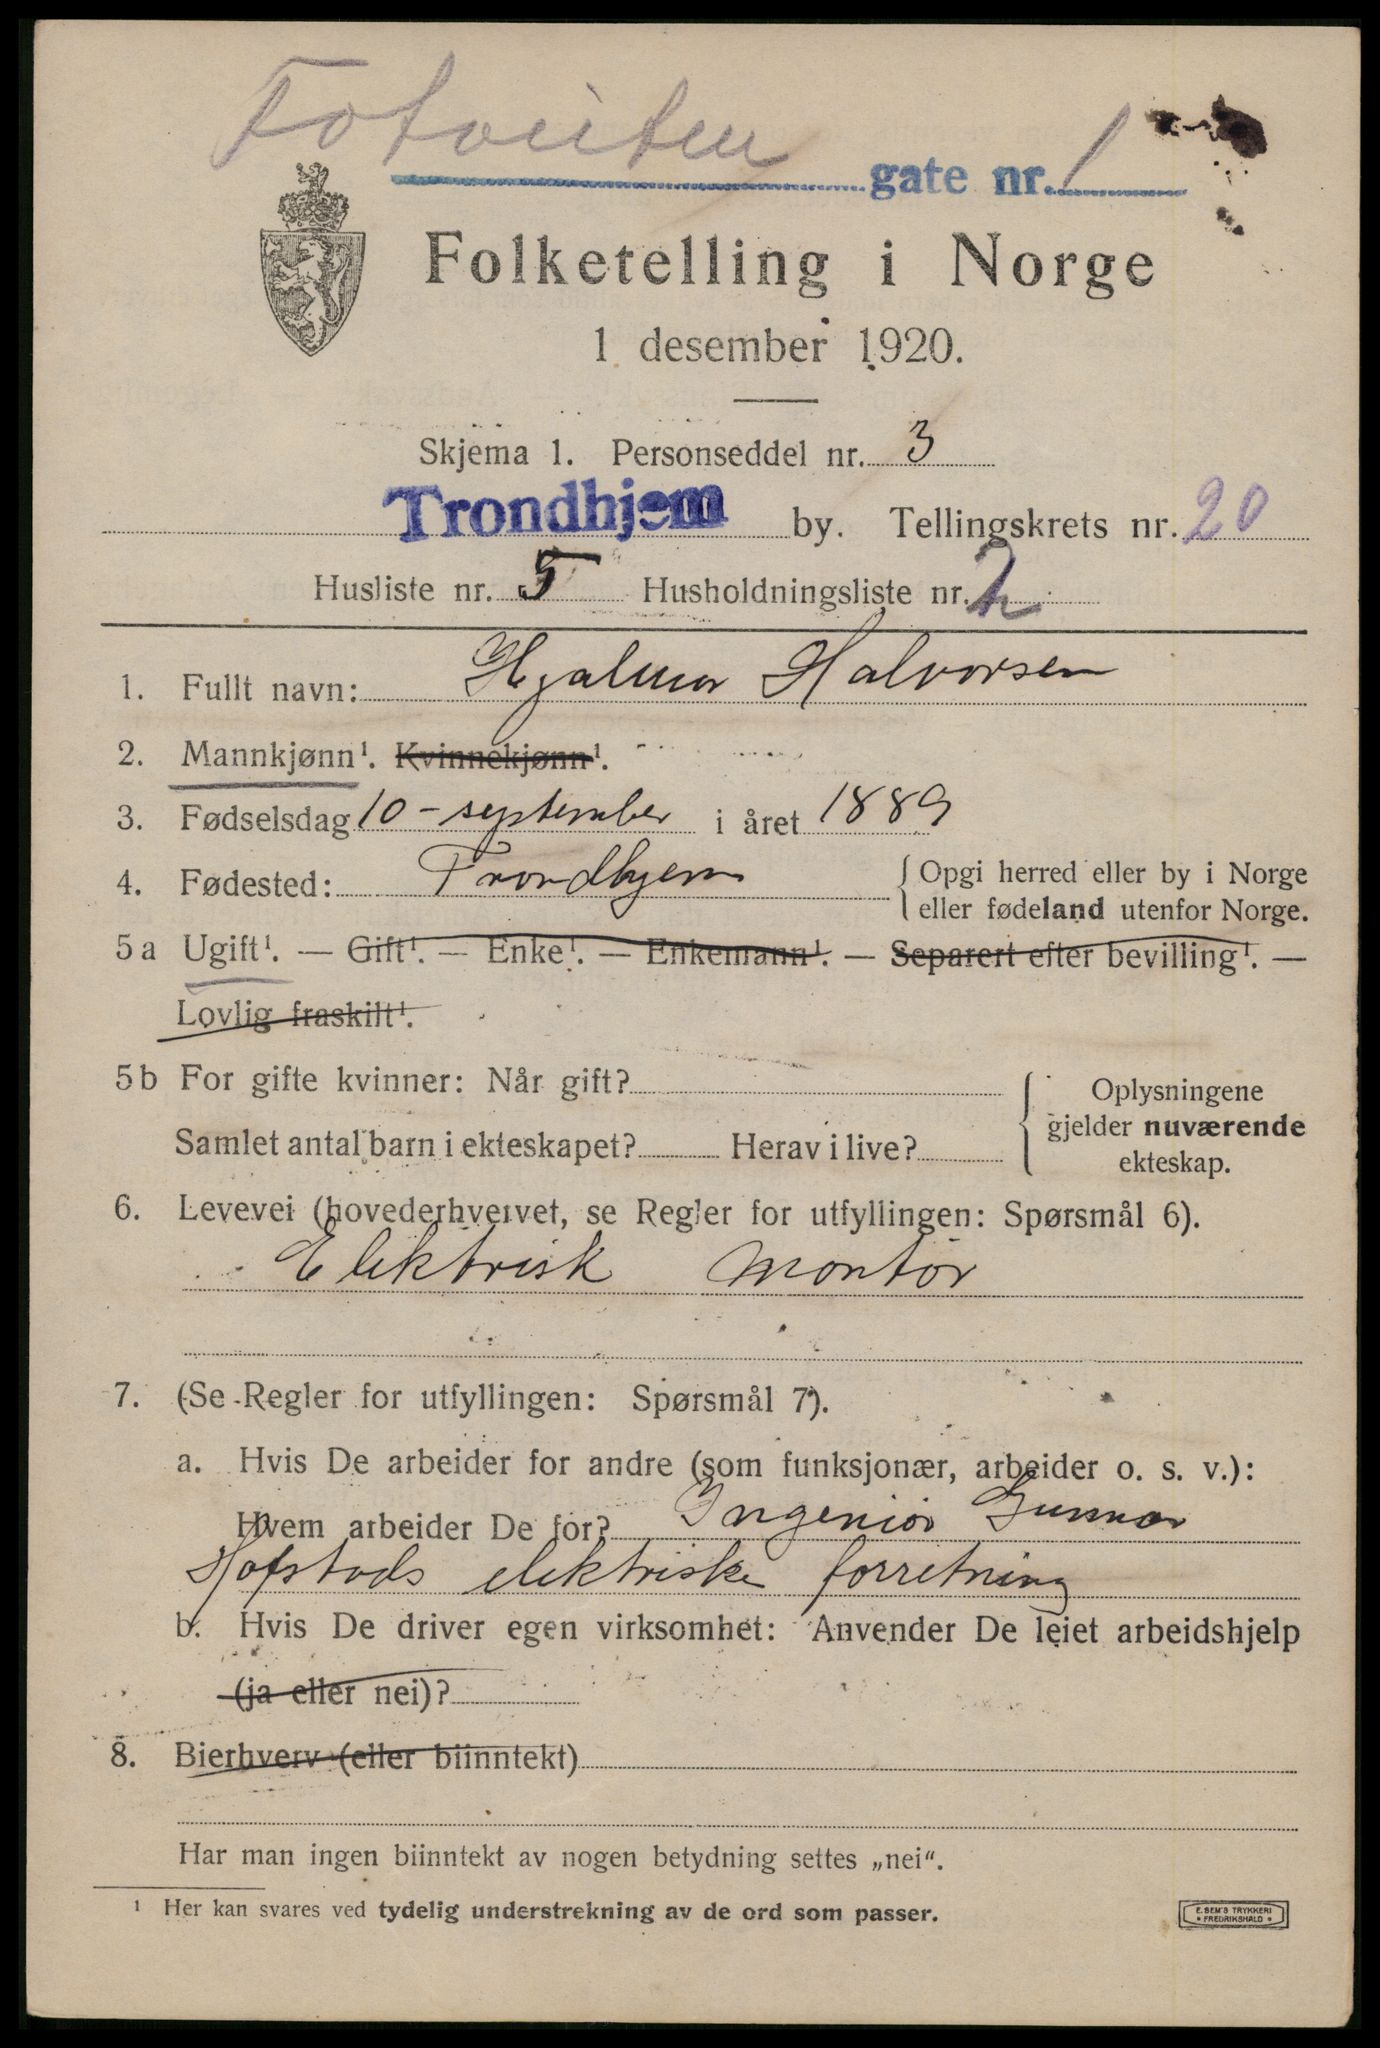 gate nr. 1
Folketelling i Norge
1 desember 1920.
Skjema 1. Personseddel nr. 3
Trondhjem by. Tellingskrets nr. 20
Husliste nr. 5 Husholdningsliste nr. 2
1. Fullt navn: Hjalmar Halvorsen
2. Mannkjønn¹. Kvinnekjønn¹.
3. Fødselsdag 10 - september i året 1889
4. Fødested: Trondhjem { Opgi herred eller by i Norge
eller fødeland utenfor Norge.
5 a Ugift¹. — Gift¹. — Enke¹. — Enkemann¹. — Separert efter bevilling¹. —
Lovlig fraskilt¹.
5 b For gifte kvinner: Når gift?
Samlet antal barn i ekteskapet? Herav i live?
{ Oplysningene
gjelder nuværende
ekteskap.
6. Levevei (hovederhvervet, se Regler for utfyllingen: Spørsmål 6).
Elektrisk montör
7. (Se Regler for utfyllingen: Spørsmål 7).
a. Hvis De arbeider for andre (som funksjonær, arbeider o. s. v.):
Hvem arbeider De for? Ingeniör Gunnar
Hofstads elektriske forretning
b. Hvis De driver egen virksomhet: Anvender De leiet arbeidshjelp
(ja eller nei)?
8. Bierhverv (eller biinntekt)
Har man ingen biinntekt av nogen betydning settes „nei“.
¹ Her kan svares ved tydelig understrekning av de ord som passer.
E. SEM'S TRYKKERI
* FREDRIKSHALD *